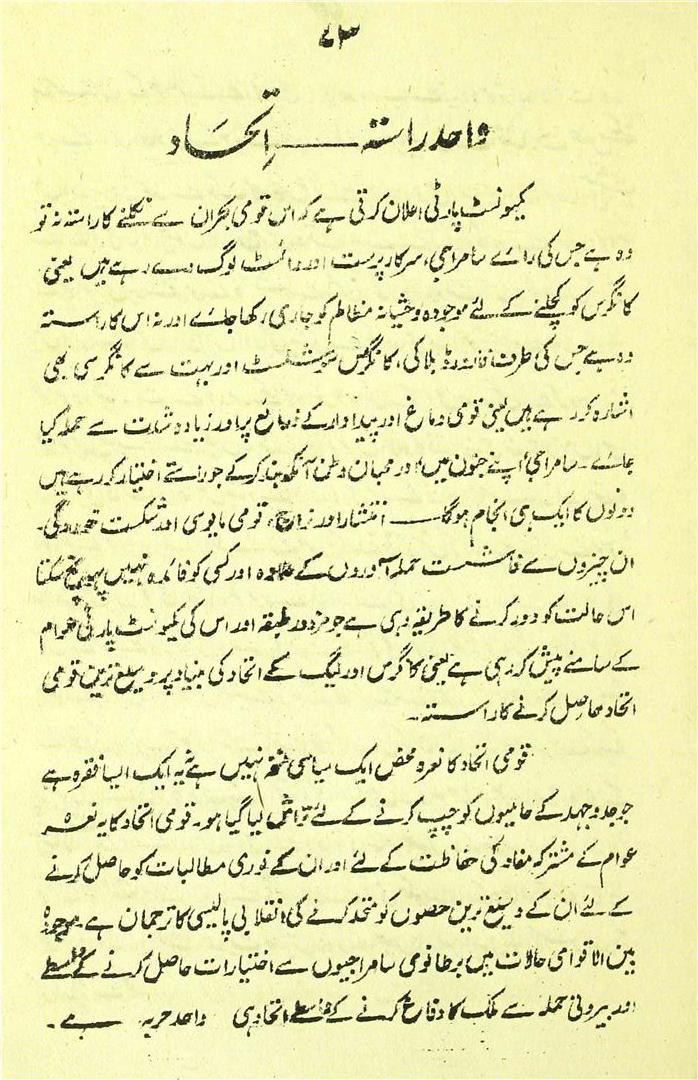 ۷۳
واحد راستہ ——— اتحاد
کمیونسٹ پارٹی اعلان کرتی ہے کہ اس قومی بحران سے نکلنے کا راستہ نہ تو
وہ ہے جس کی رائے سامراجی، سرکار پرست اور لوگ دے رہے ہیں یعنی
کانگرس کو کچلنے کے لئے موجودہ وحشیانہ مظالم کو جاری رکھا جائے اور نہ اس کا راستہ
وہ ہے جس کی طرف فارورڈ بلاکی، کانگرس سوشلسٹ اور بہت سے کانگرسی بھی
اشارہ کر رہے ہیں یعنی قومی دماغ اور پیداوار کے ذرائع پر اور زیادہ شدت سے حملہ کیا
جائے۔ سامراجی اپنے جنون میں اور محبان وطن آنکھ بند کرکے جو راستے اختیار کر رہے ہیں
دونوں کا ایک ہی انجام ہوگا —— انتشار اور نراج، قومی مایوسی اور شکست خوردگی۔
ان چیزوں سے فاشست حملہ آوروں کے علاوہ اور کسی کو فائدہ نہیں پہونچ سکتا
اس حالت کو دور کرنے کا طریقہ وہی ہے جو مزدور طبقہ اور اس کی کمیونسٹ پارٹی عوام
کے سامنے پیش کر رہی ہے یعنی کانگرس اور لیگ کے اتحاد کی بنیاد پر وسیع ترین قومی
اتحاد حاصل کرنے کا راستہ۔
قومی اتحاد کا نعرہ محض ایک سیاسی نہیں ہے نہ یہ ایک ایسا فقرہ ہے
جو جدوجہد کے حامیوں کو چپ کرنے کے لئے تراش لیا گیا ہو۔ قومی اتحاد کا یہ نعرہ
عوام کے مشترکہ مفاد کی حفاظت کے لئے اور ان کے فوری مطالبات کو حاصل کرنے
کے لئے ان کے وسیع ترین حصوں کو متحد کرنے کی انقلابی پالیسی کا ترجمان ہے۔ موجودہ
بین الاقوامی حالات میں برطانوی سامراجیوں سے اختیارات حاصل کرنے کے واسطے
اور بیرونی حملہ سے ملک کا دفاع کرنے کے واسطے اتحاد ہی واحد حربہ ہے۔